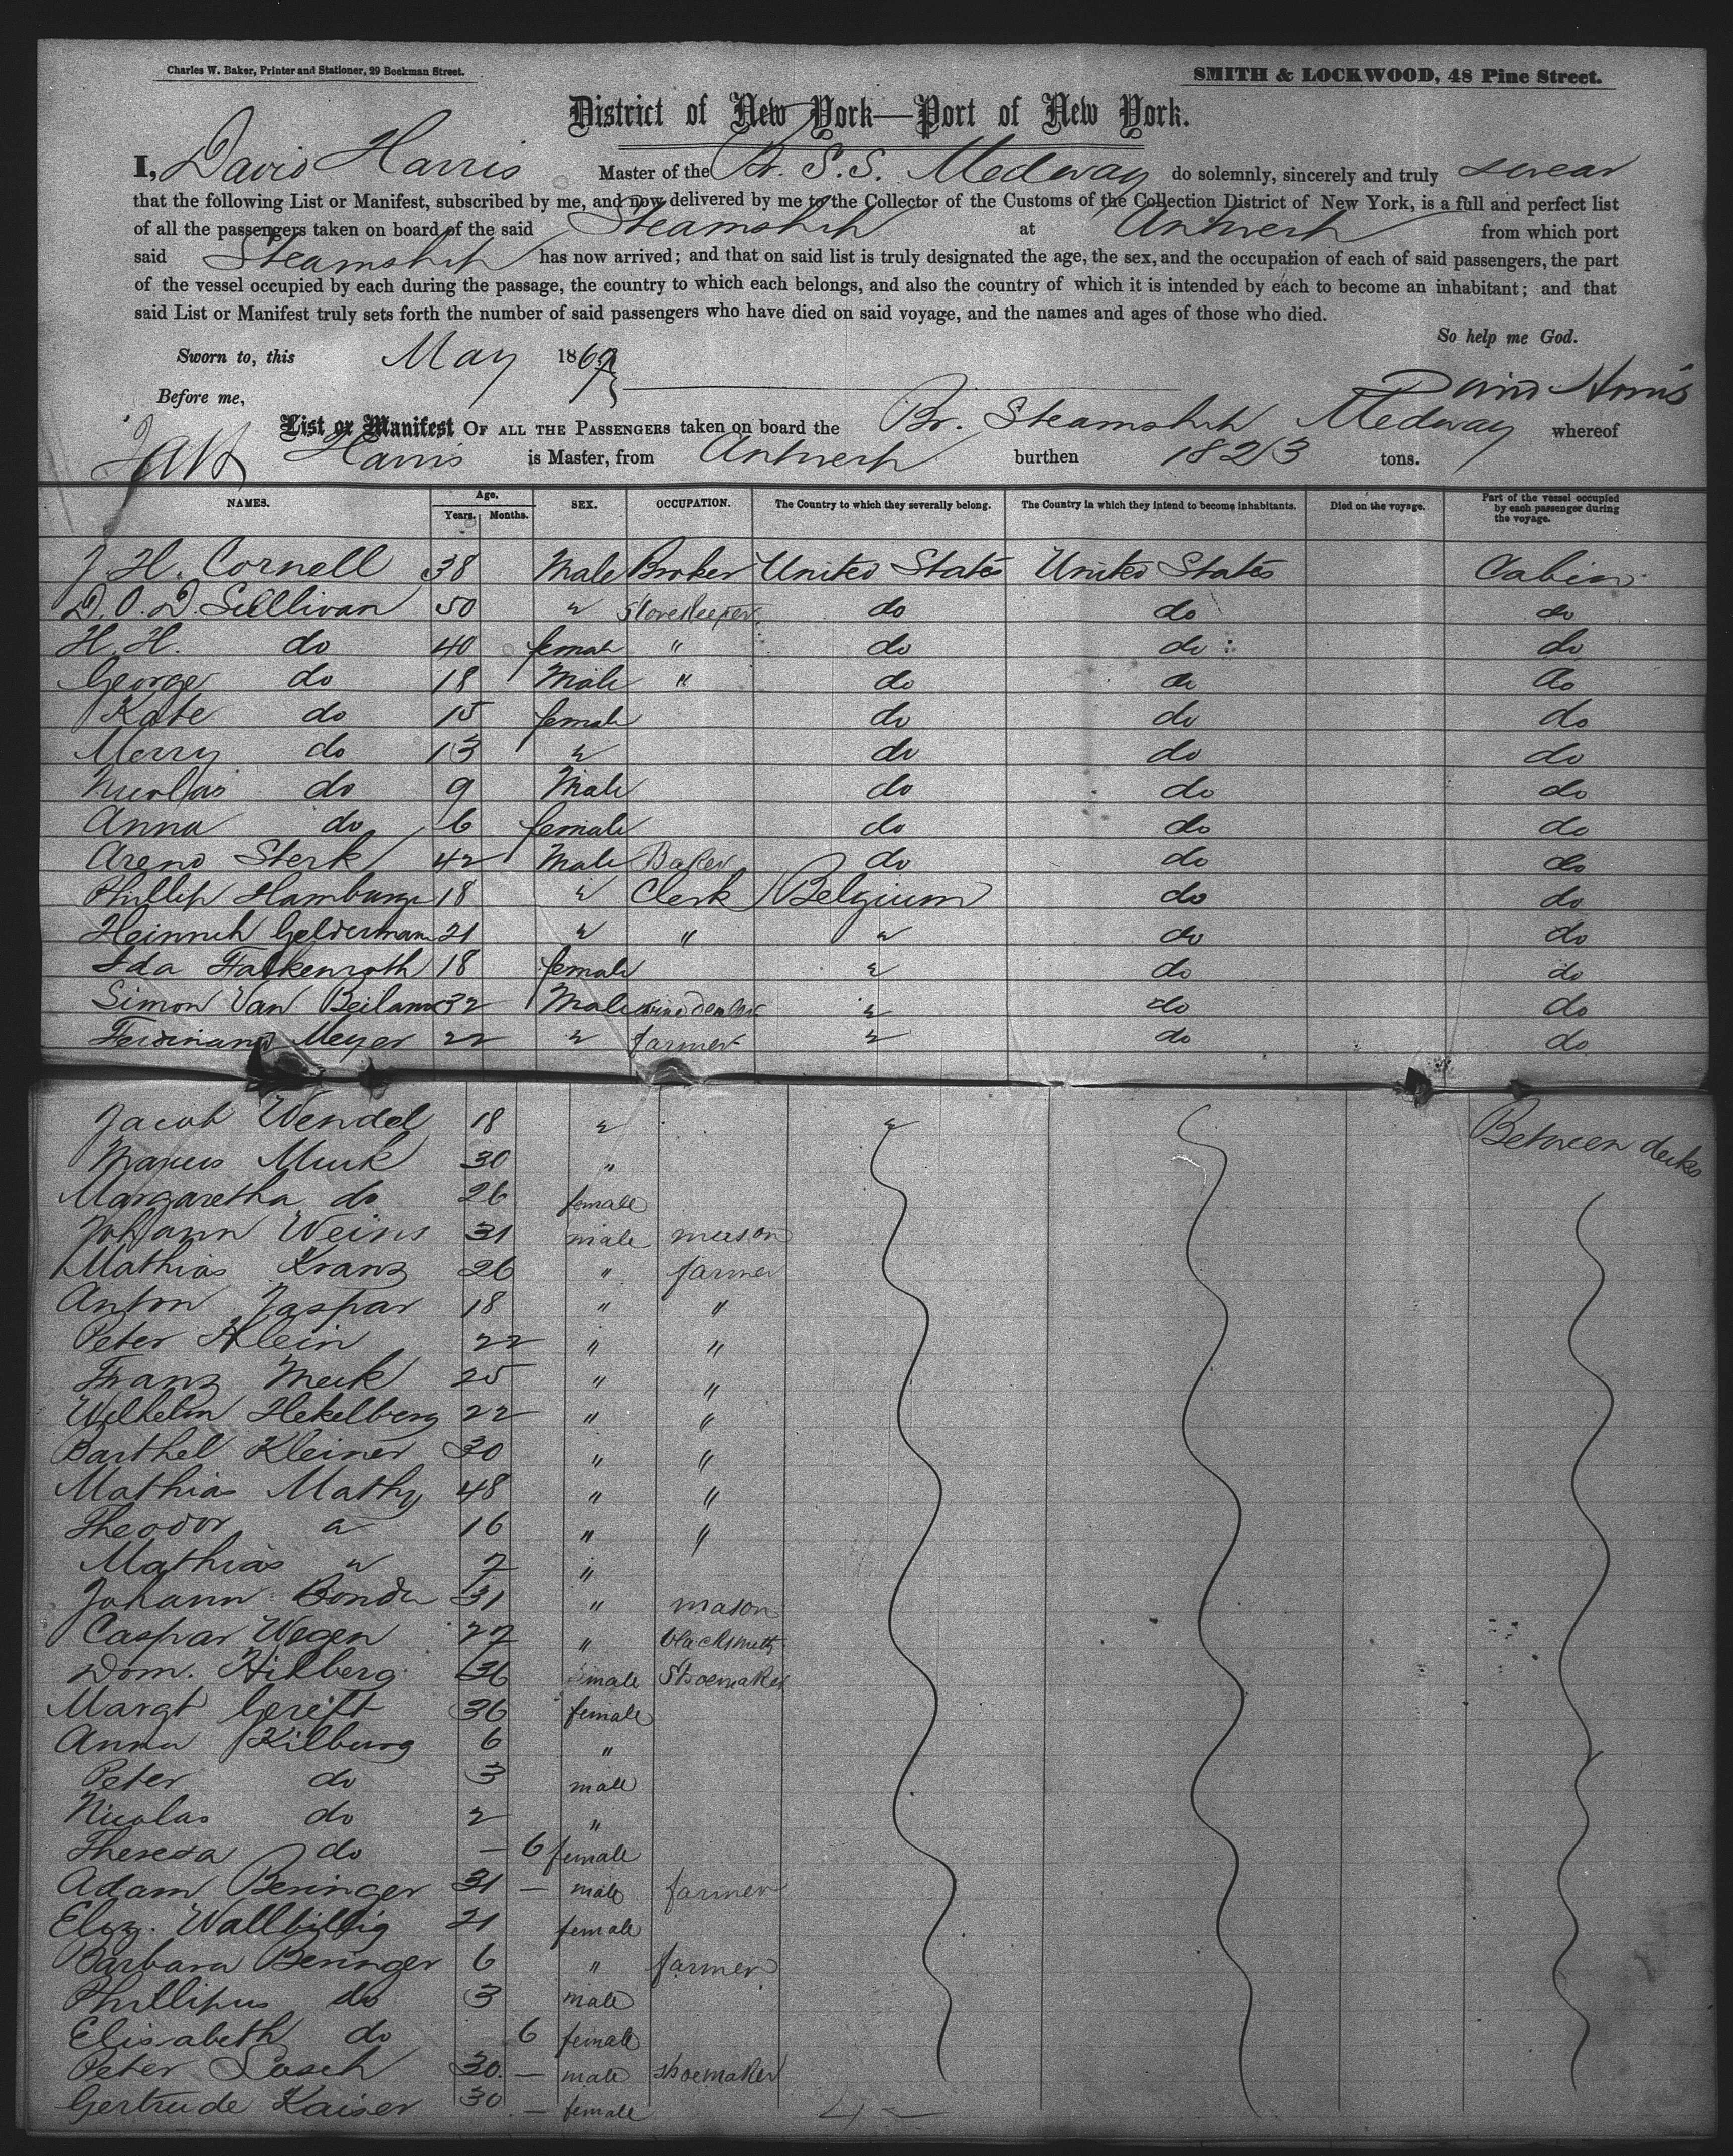 Charles W. Baker, Printer and Stationer, 29 Beekman Street.
SMITH & LOCKWOOD, 48 Pine Street.
District of New York—Port of New York.
I, David Harris Master of the Br. S.S. Medway do solemnly, sincerely and truly swear
that the following List or Manifest, subscribed by me, and now delivered by me to the Collector of the Customs of the Collection District of New York, is a full and perfect list
of all the passengers taken on board of the said Steamship at Antwerp from which port
said Steamship has now arrived; and that on said list is truly designated the age, the sex, and the occupation of each of said passengers, the part
of the vessel occupied by each during the passage, the country to which each belongs, and also the country of which it is intended by each to become an inhabitant; and that
said List or Manifest truly sets forth the number of said passengers who have died on said voyage, and the names and ages of those who died.
So help me God.
Sworn to, this May 1869
David Harris
Before me,
List or Manifest OF ALL THE PASSENGERS taken on board the Br. Steamship Medway whereof
Harris is Master, from Antwerp burthen 1823 tons.
NAMES. Age. Years. Months. SEX. OCCUPATION. The Country to which they severally belong. The Country in which they intend to become inhabitants. Died on the voyage. Part of the vessel occupied by each passenger during the voyage.
J. H. Cornell 38 Male Broker United States United States Cabin
D. O. D. Sullivan 50 " Storekeeper do do do
H. H. do 40 female " do do do
George do 18 Male " do do do
Kate do 15 female do do do
Merry do 13 " do do do
Nicolas do 9 Male do do do
Anna do 6 female do do do
Arend Sterk 42 Male Baker do do do
Phillip Hamburger 18 " Clerk Belgium do do
Heinrich Geldermann 21 " " " do do
Ida Falkenroth 18 female " do do
Simon Van Beilann 32 Male wine dealer " do do
Ferdinand Meyer 22 " farmer " do do
Jacob Wendel 18 " " Between decks
Marcus Muck 30 "
Margaretha do 26 female
Johann Weins 31 male mason
Mathias Kranz 26 " farmer
Anton Jaspar 18 " "
Peter Klein 22 " "
Franz Meck 25 " "
Wilhelm Hekelberg 22 " "
Barthel Kleiner 30 " "
Mathias Mathy 48 " "
Theodor " 16 " "
Mathias " 7 "
Johann Bonder 31 " mason
Caspar Wegen 27 " blacksmith
Dom. Hilberg 36 male Shoemaker
Margt Gereift 36 female
Anna Kilburg 6 "
Peter do 3 male
Nicolas do 2 "
Theresa do — 6 female
Adam Beringer 31 — male farmer
Eliz. Wallbillig 21 female
Barbara Beringer 6 " farmer
Phillipus do 3 male
Elisabeth do 6 female
Peter Lasch 30 — male shoemaker
Gertrude Kaiser 30 — female